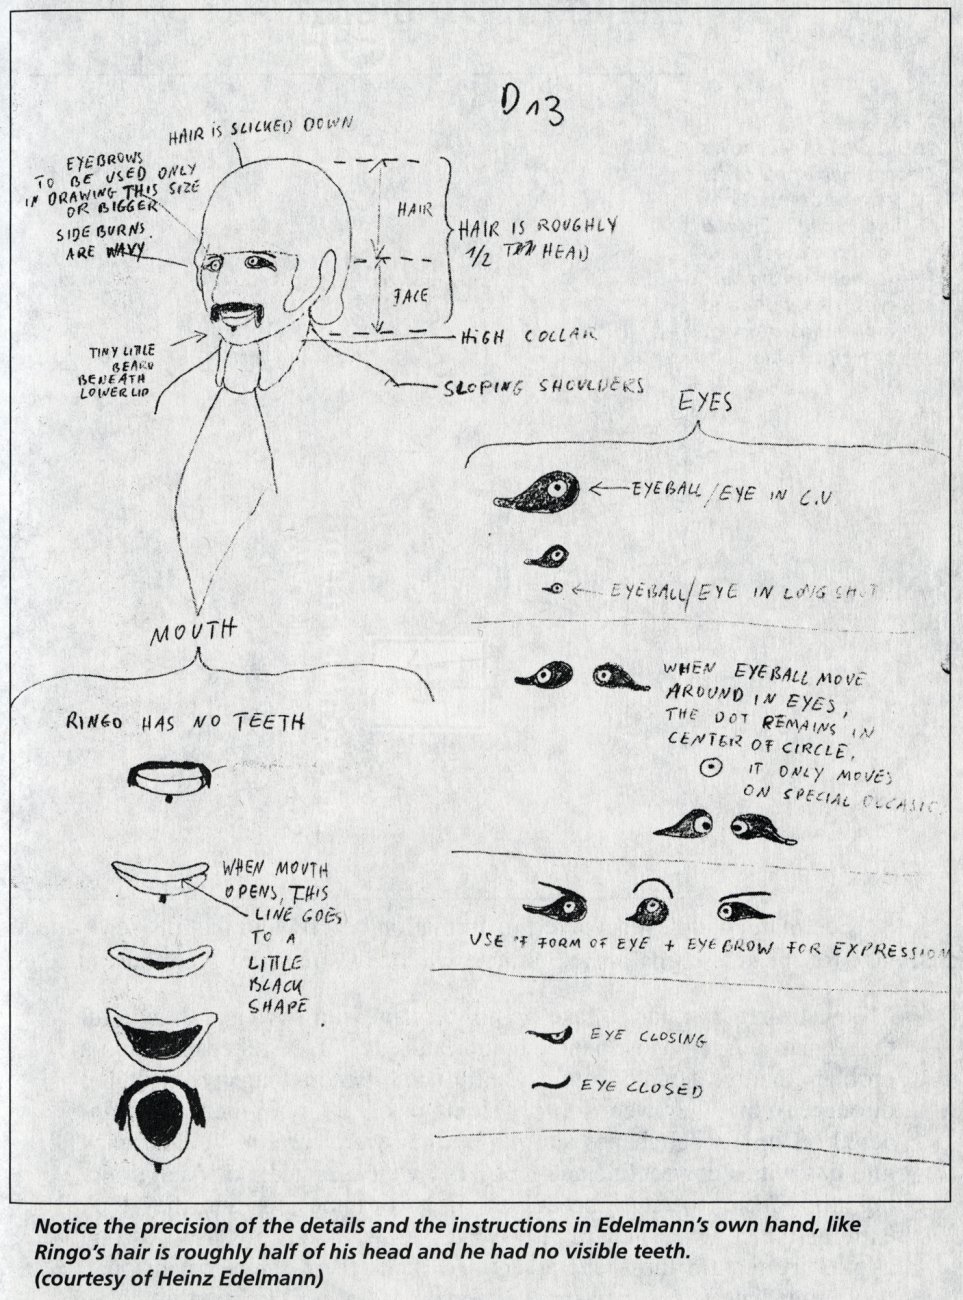 D13
HAIR IS SLICKED DOWN
EYEBROWS
TO BE USED ONLY
IN DRAWING THIS SIZE
OR BIGGER
SIDE BURNS
ARE WAVY
HAIR
FACE
HAIR IS ROUGHLY
1/2 HEAD
HIGH COLLAR
SLOPING SHOULDERS
TINY LITTLE
BEARD
BENEATH
LOWER LIP
MOUTH
RINGO HAS NO TEETH
WHEN MOUTH
OPENS, THIS
LINE GOES
TO A
LITTLE
BLACK
SHAPE
EYES
EYEBALL/EYE IN C.U
EYEBALL/EYE IN LONG SHOT
WHEN EYEBALL MOVE
AROUND IN EYES,
THE DOT REMAINS IN
CENTER OF CIRCLE,
IT ONLY MOVES
ON SPECIAL OCCASIO
USE OF FORM OF EYE + EYEBROW FOR EXPRESSION
EYE CLOSING
EYE CLOSED
Notice the precision of the details and the instructions in Edelmann's own hand, like
Ringo's hair is roughly half of his head and he had no visible teeth.
(courtesy of Heinz Edelmann)